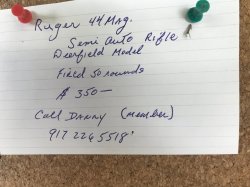 Ruger 44 Mag.
Semi Auto Rifle
Deerfield Model
Fired 50 rounds
$ 350—
Call Danny (member)
917 226 5518